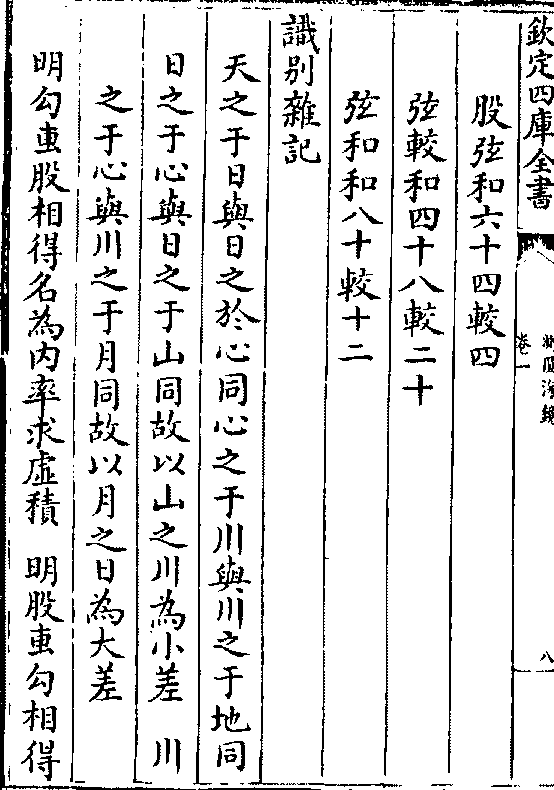 欽定四庫全書
卷一
八
股弦和六十四較四
弦較和四十八較二十
弦和和八十較十二
識別雜記
天之于日與日之於心同心之于川與川之于地同
日之于心與日之于山同故以山之川為小差　川
之于心與川之于月同故以月之日為大差
明勾叀股相得名為内率求虛積　明股叀勾相得